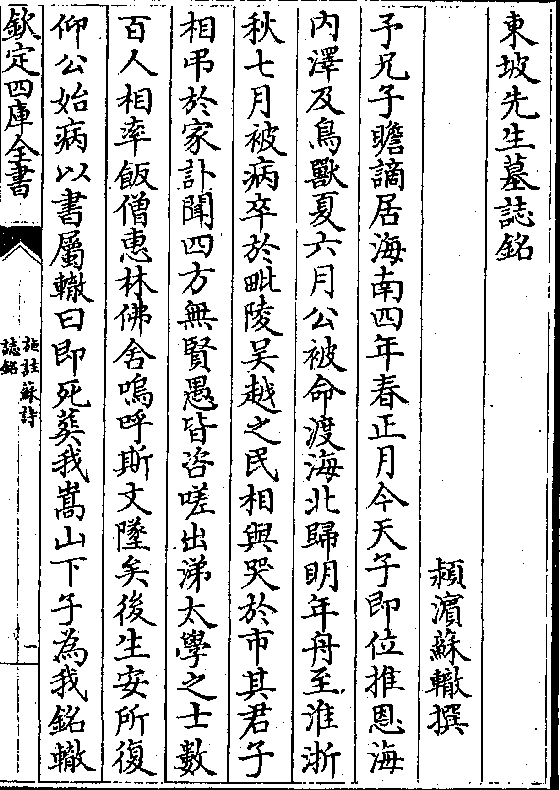 東坡先生墓誌銘
潁濵蘇轍撰
予兄子瞻謫居海南四年春正月今天子即位推恩海
内澤及鳥獸夏六月公被命渡海北歸明年舟至淮浙
秋七月被病卒於毗陵吴越之民相與哭於市其君子
相弔於家訃聞四方無賢愚皆咨嗟出涕太學之士數
百人相率飯僧惠林佛舍嗚呼斯文墜矣後生安所復
仰公始病以書屬轍曰即死葬我嵩山下子為我銘轍
欽定四庫全書
施註蘇詩
誌銘
一